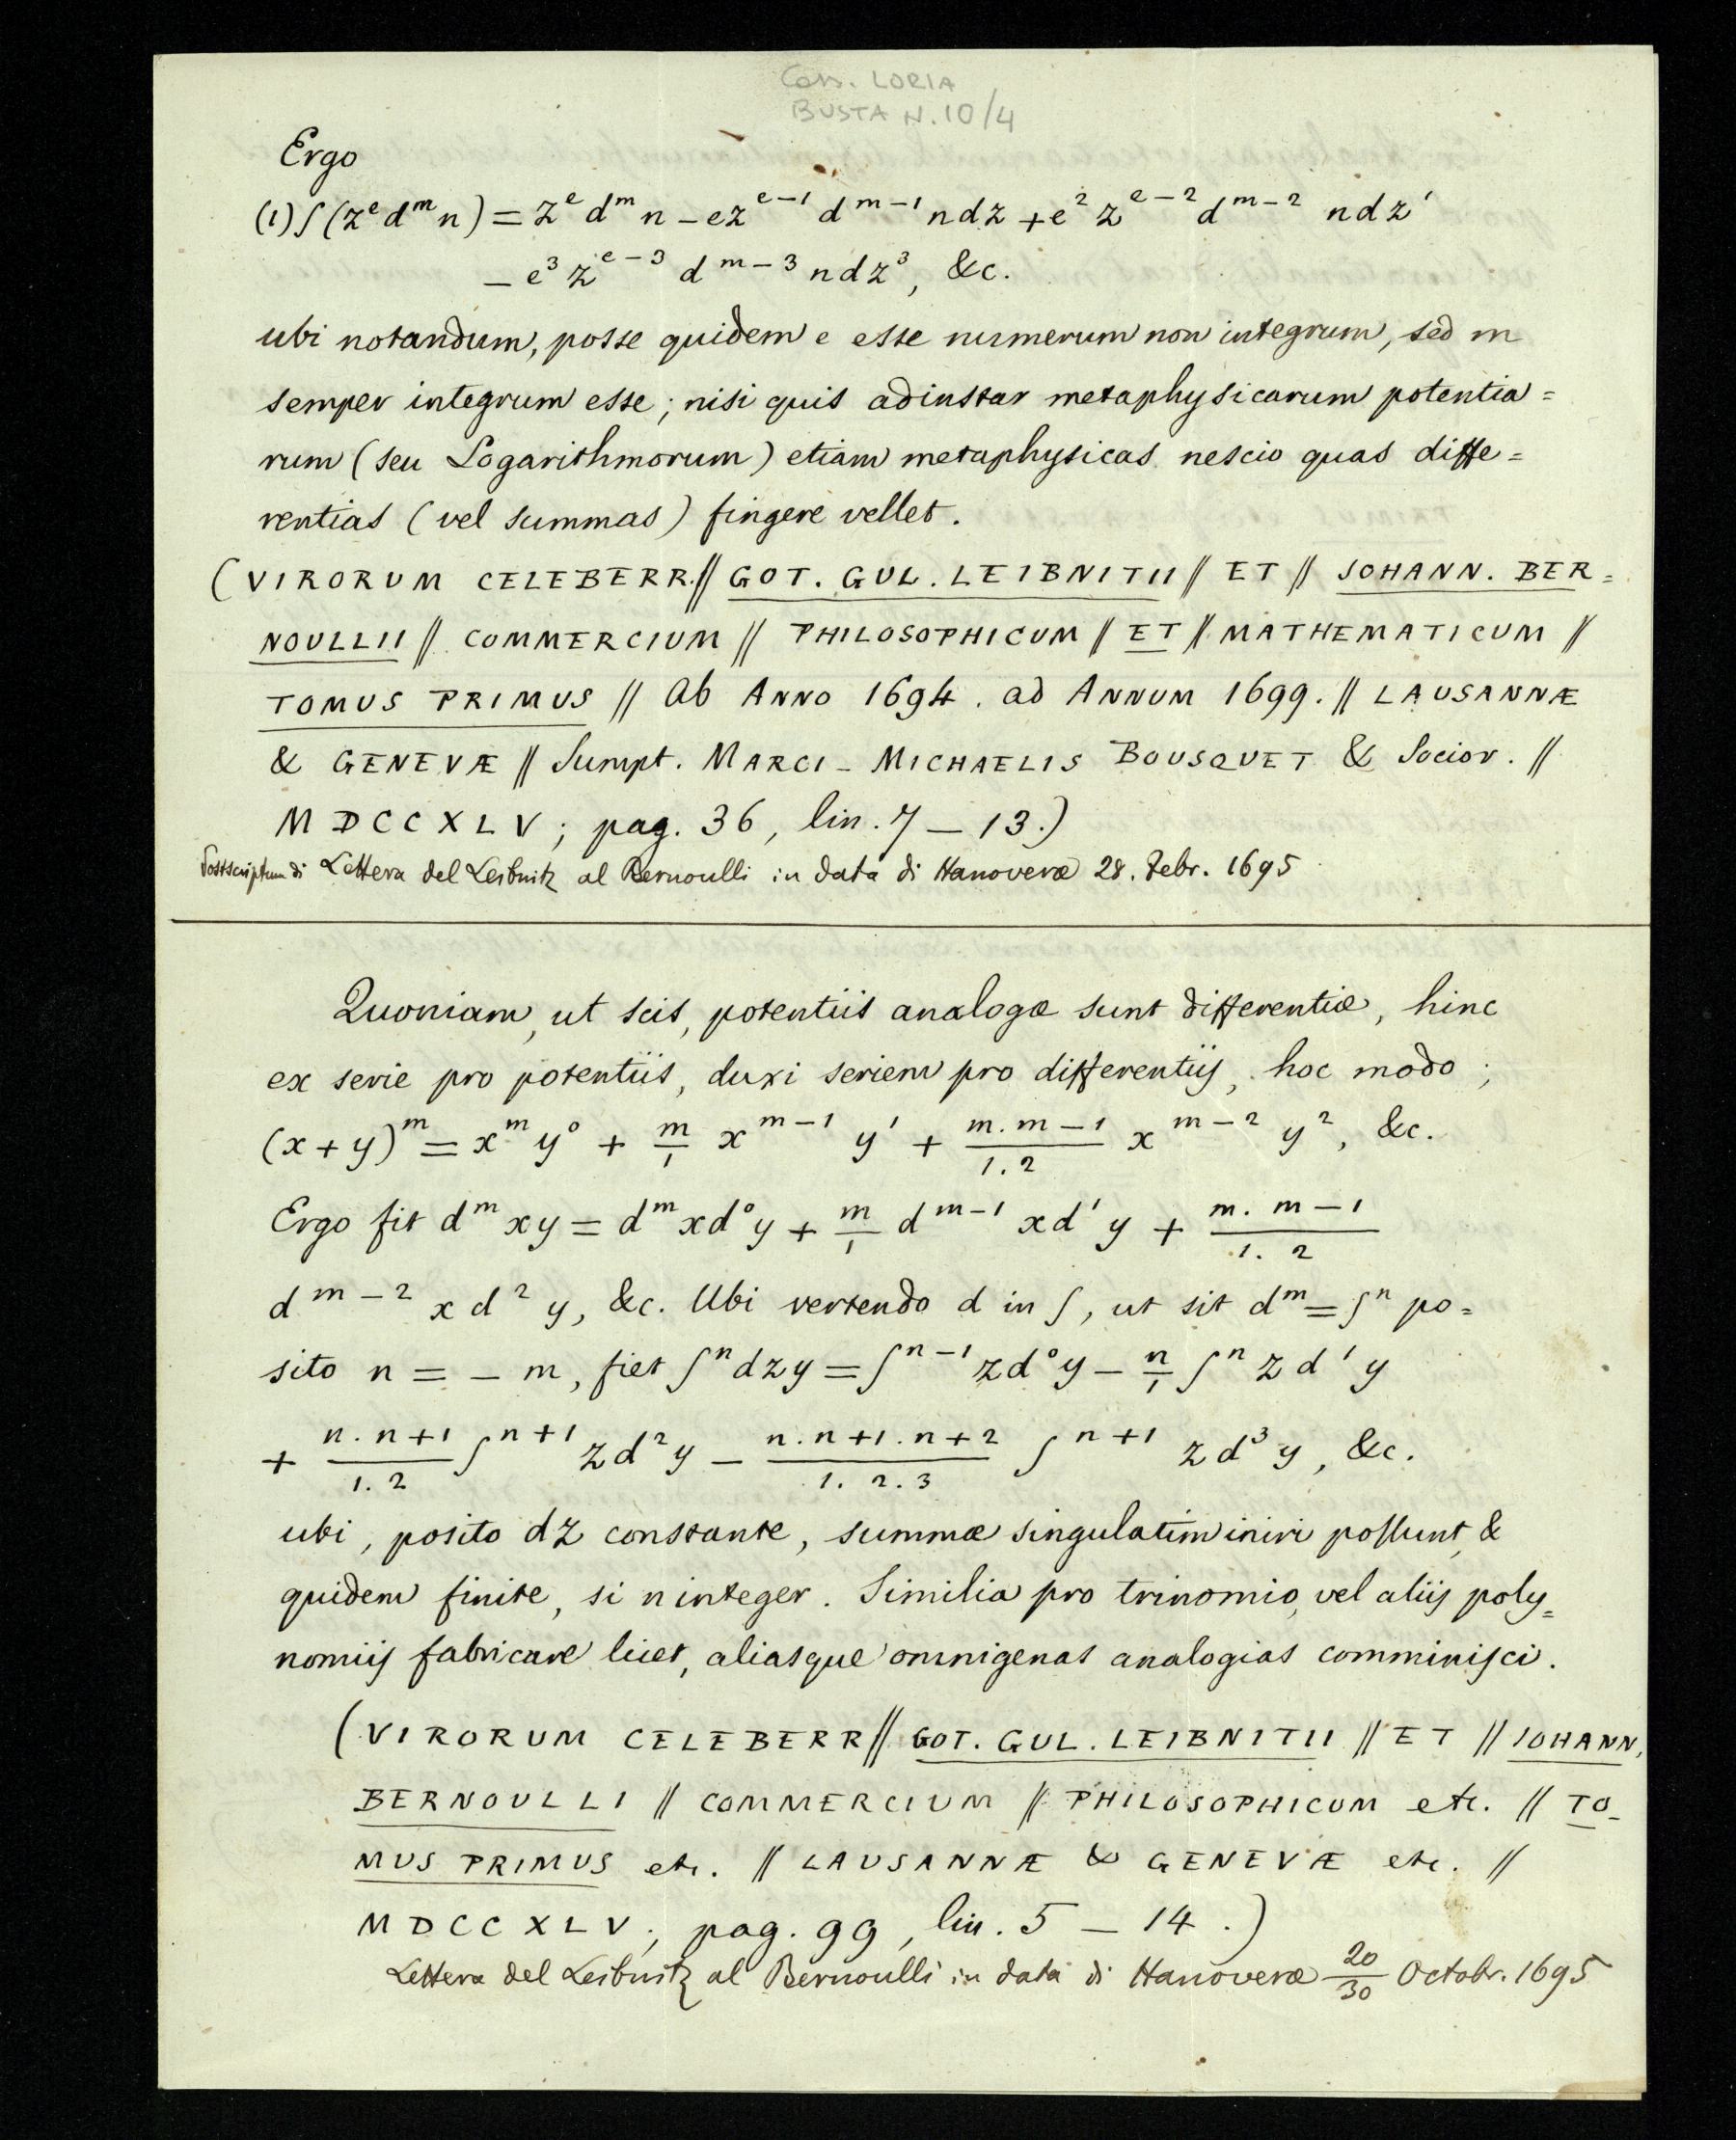 Corr. LORIA
BUSTA N. 10/4
Ergo
(1) ∫ (zᵉ dᵐ n) = zᵉ dᵐ n − e zᵉ⁻¹ dᵐ⁻¹ n dz + e² zᵉ⁻² dᵐ⁻² n dz'
− e³ zᵉ⁻³ dᵐ⁻³ n dz³, &c.
ubi notandum, posse quidem e esse numerum non integrum, sed m
semper integrum esse; nisi quis adinstar metaphysicarum potentia=
rum (seu Logarithmorum) etiam metaphysicas nescio quas diffe=
rentias (vel summas) fingere vellet.
(VIRORUM CELEBERR. // GOT. GUL. LEIBNITII // ET // JOHANN. BER=
NOULLII // COMMERCIUM // PHILOSOPHICUM // ET // MATHEMATICUM //
TOMUS PRIMUS // Ab ANNO 1694. ad ANNUM 1699. // LAUSANNÆ
& GENEVÆ // Sumpt. MARCI-MICHAELIS BOUSQUET & Socior. //
MDCCXLV; pag. 36, lin. 7 – 13.)
Postscriptum di Lettera del Leibnitz al Bernoulli in data di Hanoveræ 28. Febr. 1695
Quoniam, ut scis, potentiis analogæ sunt differentiæ, hinc
ex serie pro potentiis, duxi seriem pro differentiis, hoc modo;
(x + y)ᵐ = xᵐ y⁰ + m/1 xᵐ⁻¹ y' + m.m−1/1.2 xᵐ⁻² y², &c.
Ergo fit dᵐ xy = dᵐ x d⁰ y + m/1 dᵐ⁻¹ x d' y + m. m−1/1. 2
dᵐ⁻² x d² y, &c. Ubi vertendo d in ∫, ut sit dᵐ = ∫ⁿ po=
sito n = − m, fiet ∫ⁿ dzy = ∫ⁿ⁻¹ z d⁰ y − n/1 ∫ⁿ z d' y
+ n. n+1/1. 2 ∫ⁿ⁺¹ z d² y − n. n+1. n+2/1. 2. 3 ∫ⁿ⁺¹ z d³ y, &c.
ubi, posito dz constante, summæ singulatim iniri possunt, &
quidem finite, si n integer. Similia pro trinomio, vel aliis poly=
nomiis fabricare licet, aliasque omnigenas analogias comminisci.
(VIRORUM CELEBERR // GOT. GUL. LEIBNITII // ET // IOHANN.
BERNOULLI // COMMERCIUM // PHILOSOPHICUM etc. // TO-
MUS PRIMUS etc. // LAUSANNÆ & GENEVÆ etc. //
MDCCXLV; pag. 99, lin. 5 – 14.)
Lettera del Leibnitz al Bernoulli in data di Hanoveræ 20/30 Octobr. 1695